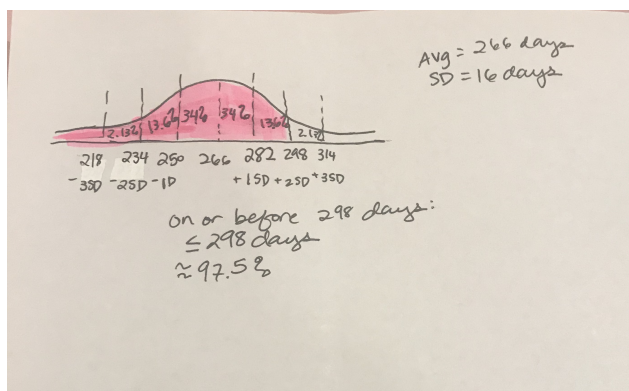 Avg = 266 days
SD = 16 days
2.13% 13.6% 34% 34% 13.6% 2.13%
218 234 250 266 282 298 314
-3SD -2SD -1D +1SD +2SD +3SD
on or before 298 days:
≤ 298 days
≈ 97.5%